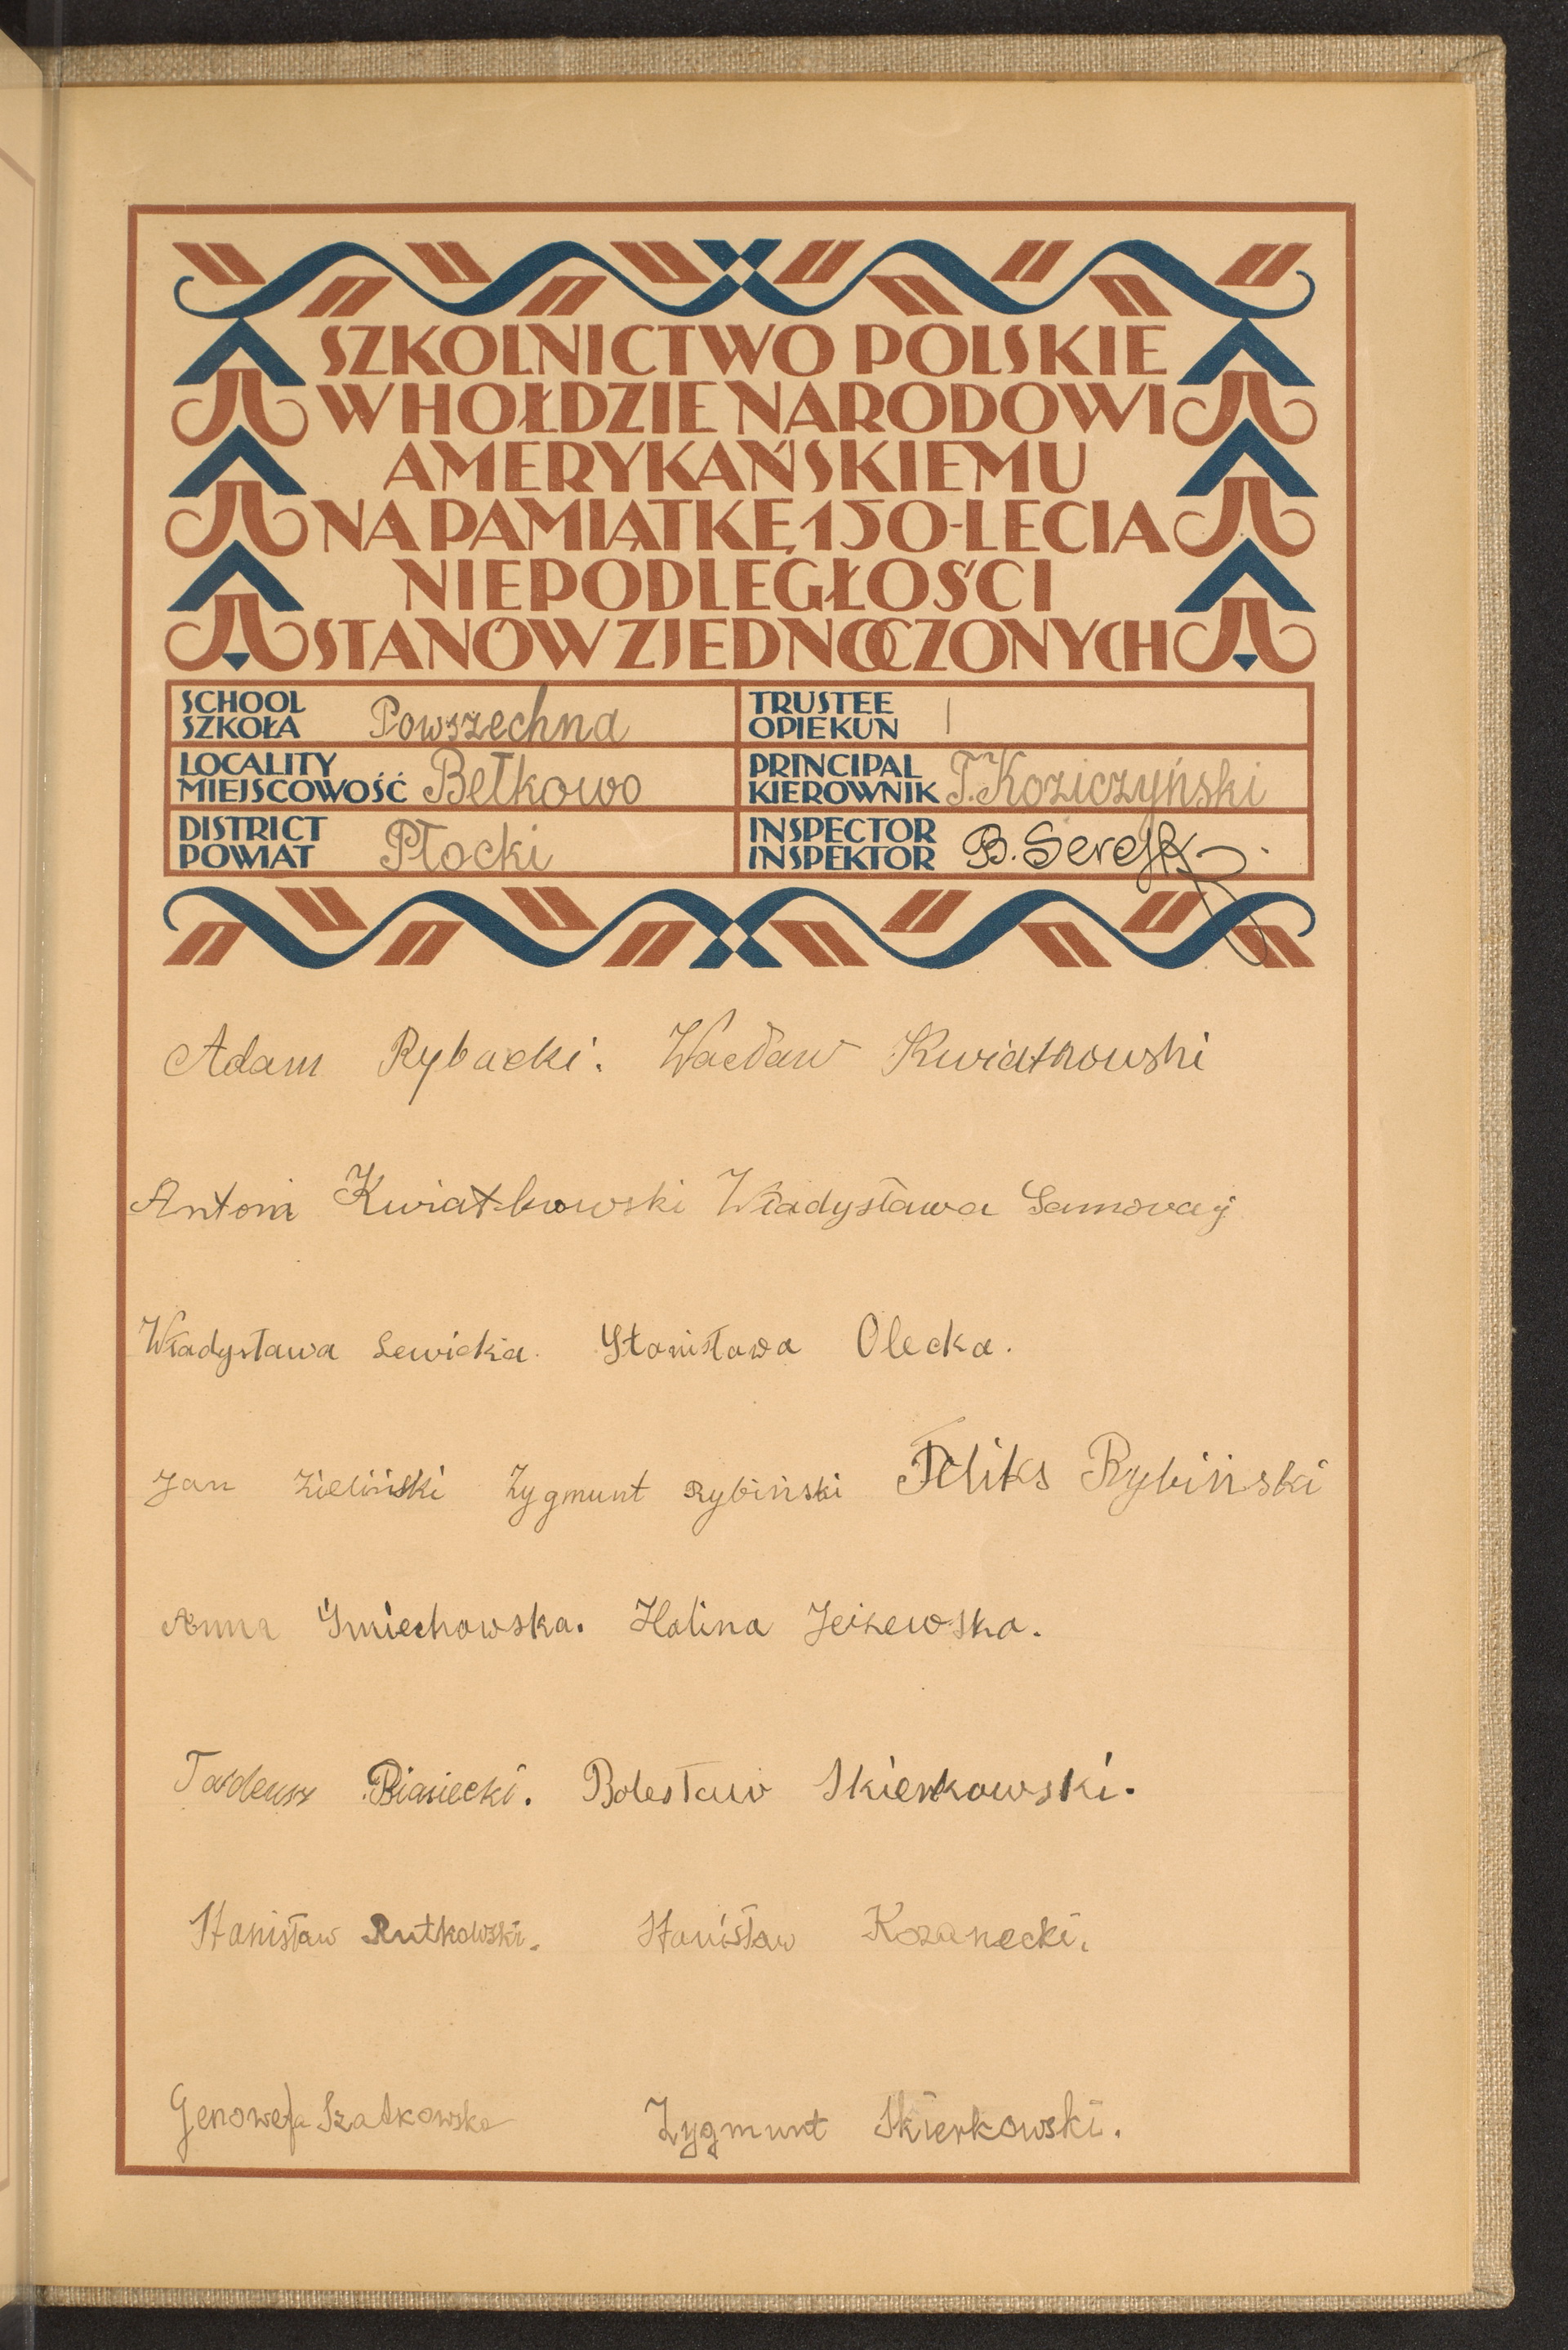 SZKOLNICTWO POLSKIE
W HOŁDZIE NARODOWI
AMERYKAŃSKIEMU
NA PAMIĄTKĘ 150-LECIA
NIEPODLEGŁOŚCI
STANÓW ZJEDNOCZONYCH
SCHOOL
SZKOŁA Powszechna
TRUSTEE
OPIEKUN
LOCALITY
MIEJSCOWOŚĆ Bełkowo
PRINCIPAL
KIEROWNIK T. Koziczyński
DISTRICT
POWIAT Płocki
INSPECTOR
INSPEKTOR B.
Adam Rybacki. Wacław Kwiatkowski
Antoni Kwiatkowski Władysława
Władysława Lewicka. Stanisława Olecka.
Jan Zieliński Zygmunt Rybiński Feliks Rybiński
Anna Śmiechowska. Halina Jeżewska.
Tadeusz Biasiecki. Bolesław Skierkowski.
Stanisław Rutkowski. Stanisław Kozanecki.
Genowefa Szatkowska Zygmunt Skierkowski.